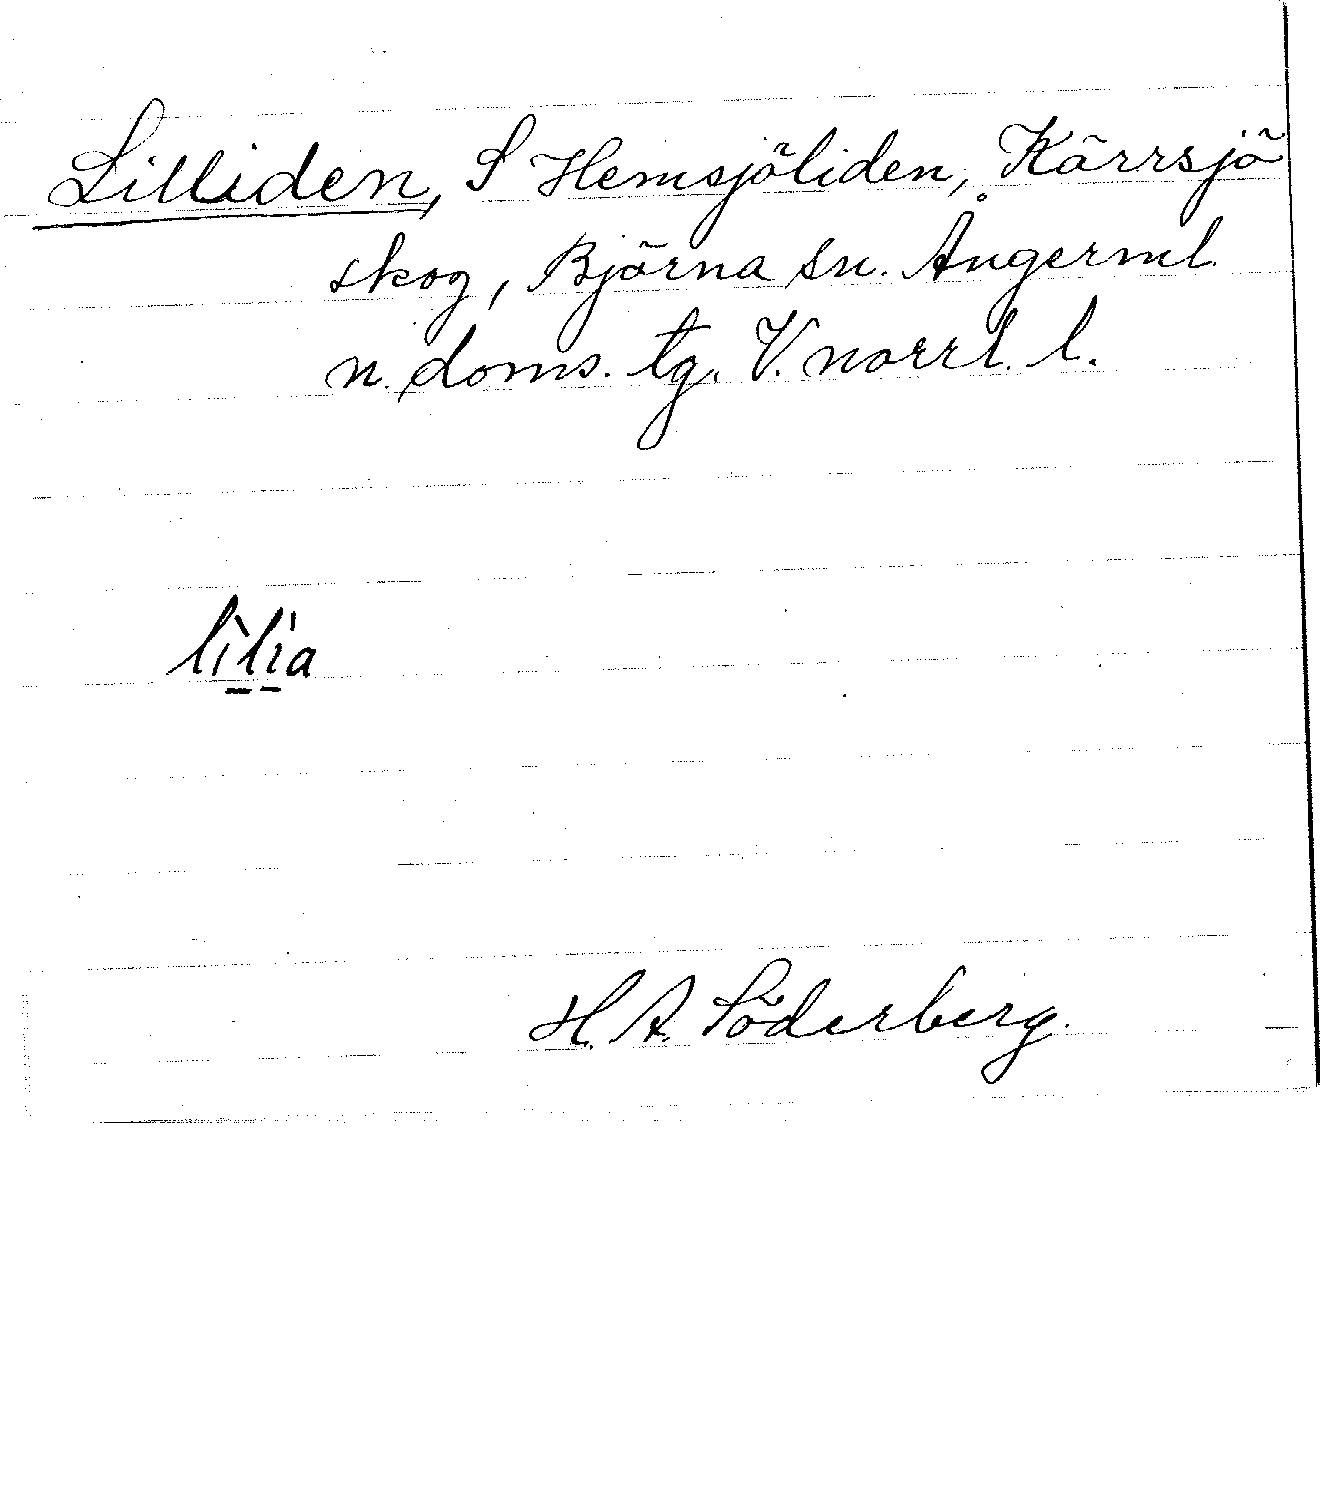 Lilliden, S Hemsjöliden, Kärrsjö
skog, Björna sn. Ångerml.
n. doms. tg. V.norrl. l.
lìlìa
H. A. Söderberg.